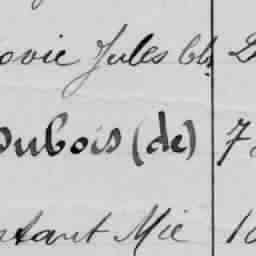 ovie Jules Ch.
Dubois (de) 7
stant Mie 10